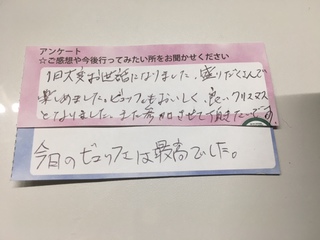 アンケート
☆ご感想や今後行ってみたい所をお聞かせください
1日大変お世話になりました。盛りだくさんで
楽しめました。ビュッフェもおいしく、良いクリスマス
となりました。また参加させて頂きたいです。
今日のビュッフェは最高でした。